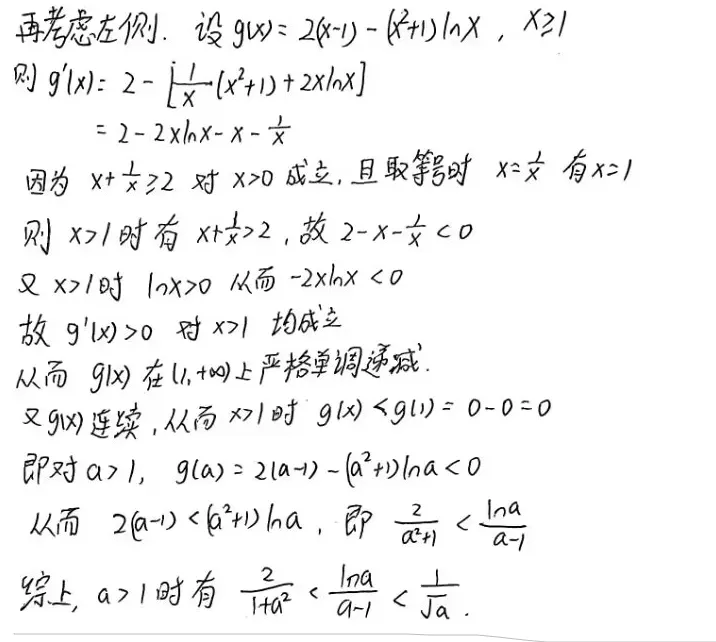 再考虑左侧. 设 g(x) = 2(x-1) - (x²+1)lnx , x≥1
则 g'(x) = 2 - [1/x (x²+1) + 2xlnx]
= 2 - 2xlnx - x - 1/x
因为 x + 1/x ≥ 2 对 x>0 成立, 且取等号时 x = 1/x 有 x=1
则 x>1 时有 x + 1/x > 2 , 故 2 - x - 1/x < 0
又 x>1 时 lnx>0 从而 -2xlnx < 0
故 g'(x) > 0 对 x>1 均成立
从而 g(x) 在 (1, +∞) 上严格单调递减.
又 g(x) 连续, 从而 x>1 时 g(x) < g(1) = 0-0 = 0
即对 a>1, g(a) = 2(a-1) - (a²+1)lna < 0
从而 2(a-1) < (a²+1)lna , 即 2/(a²+1) < lna/(a-1)
综上, a>1 时有 2/(1+a²) < lna/(a-1) < 1/√a .